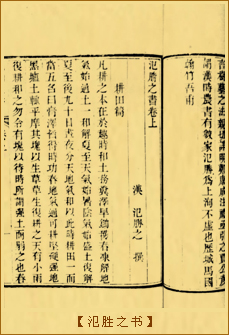 謂漢時農書有數家氾勝為上海不虛也歷城馬國
翰竹吾甫
氾勝之書卷上
漢 氾勝之 撰
耕田篇
凡耕之本在於趣時和土務糞澤早鋤早穫春凍解地
氣始通土一和解夏至天氣始暑陰氣始盛土復解
夏至後九十日晝夜分天地氣和以此時耕田一而
當五名曰膏澤皆得時功春地氣通可耕堅硬强地
黑壚土輒平摩其塊以生草草生復耕之天有小雨
復耕和之勿令有塊以待時所謂强土而弱之也春
【氾胜之书】